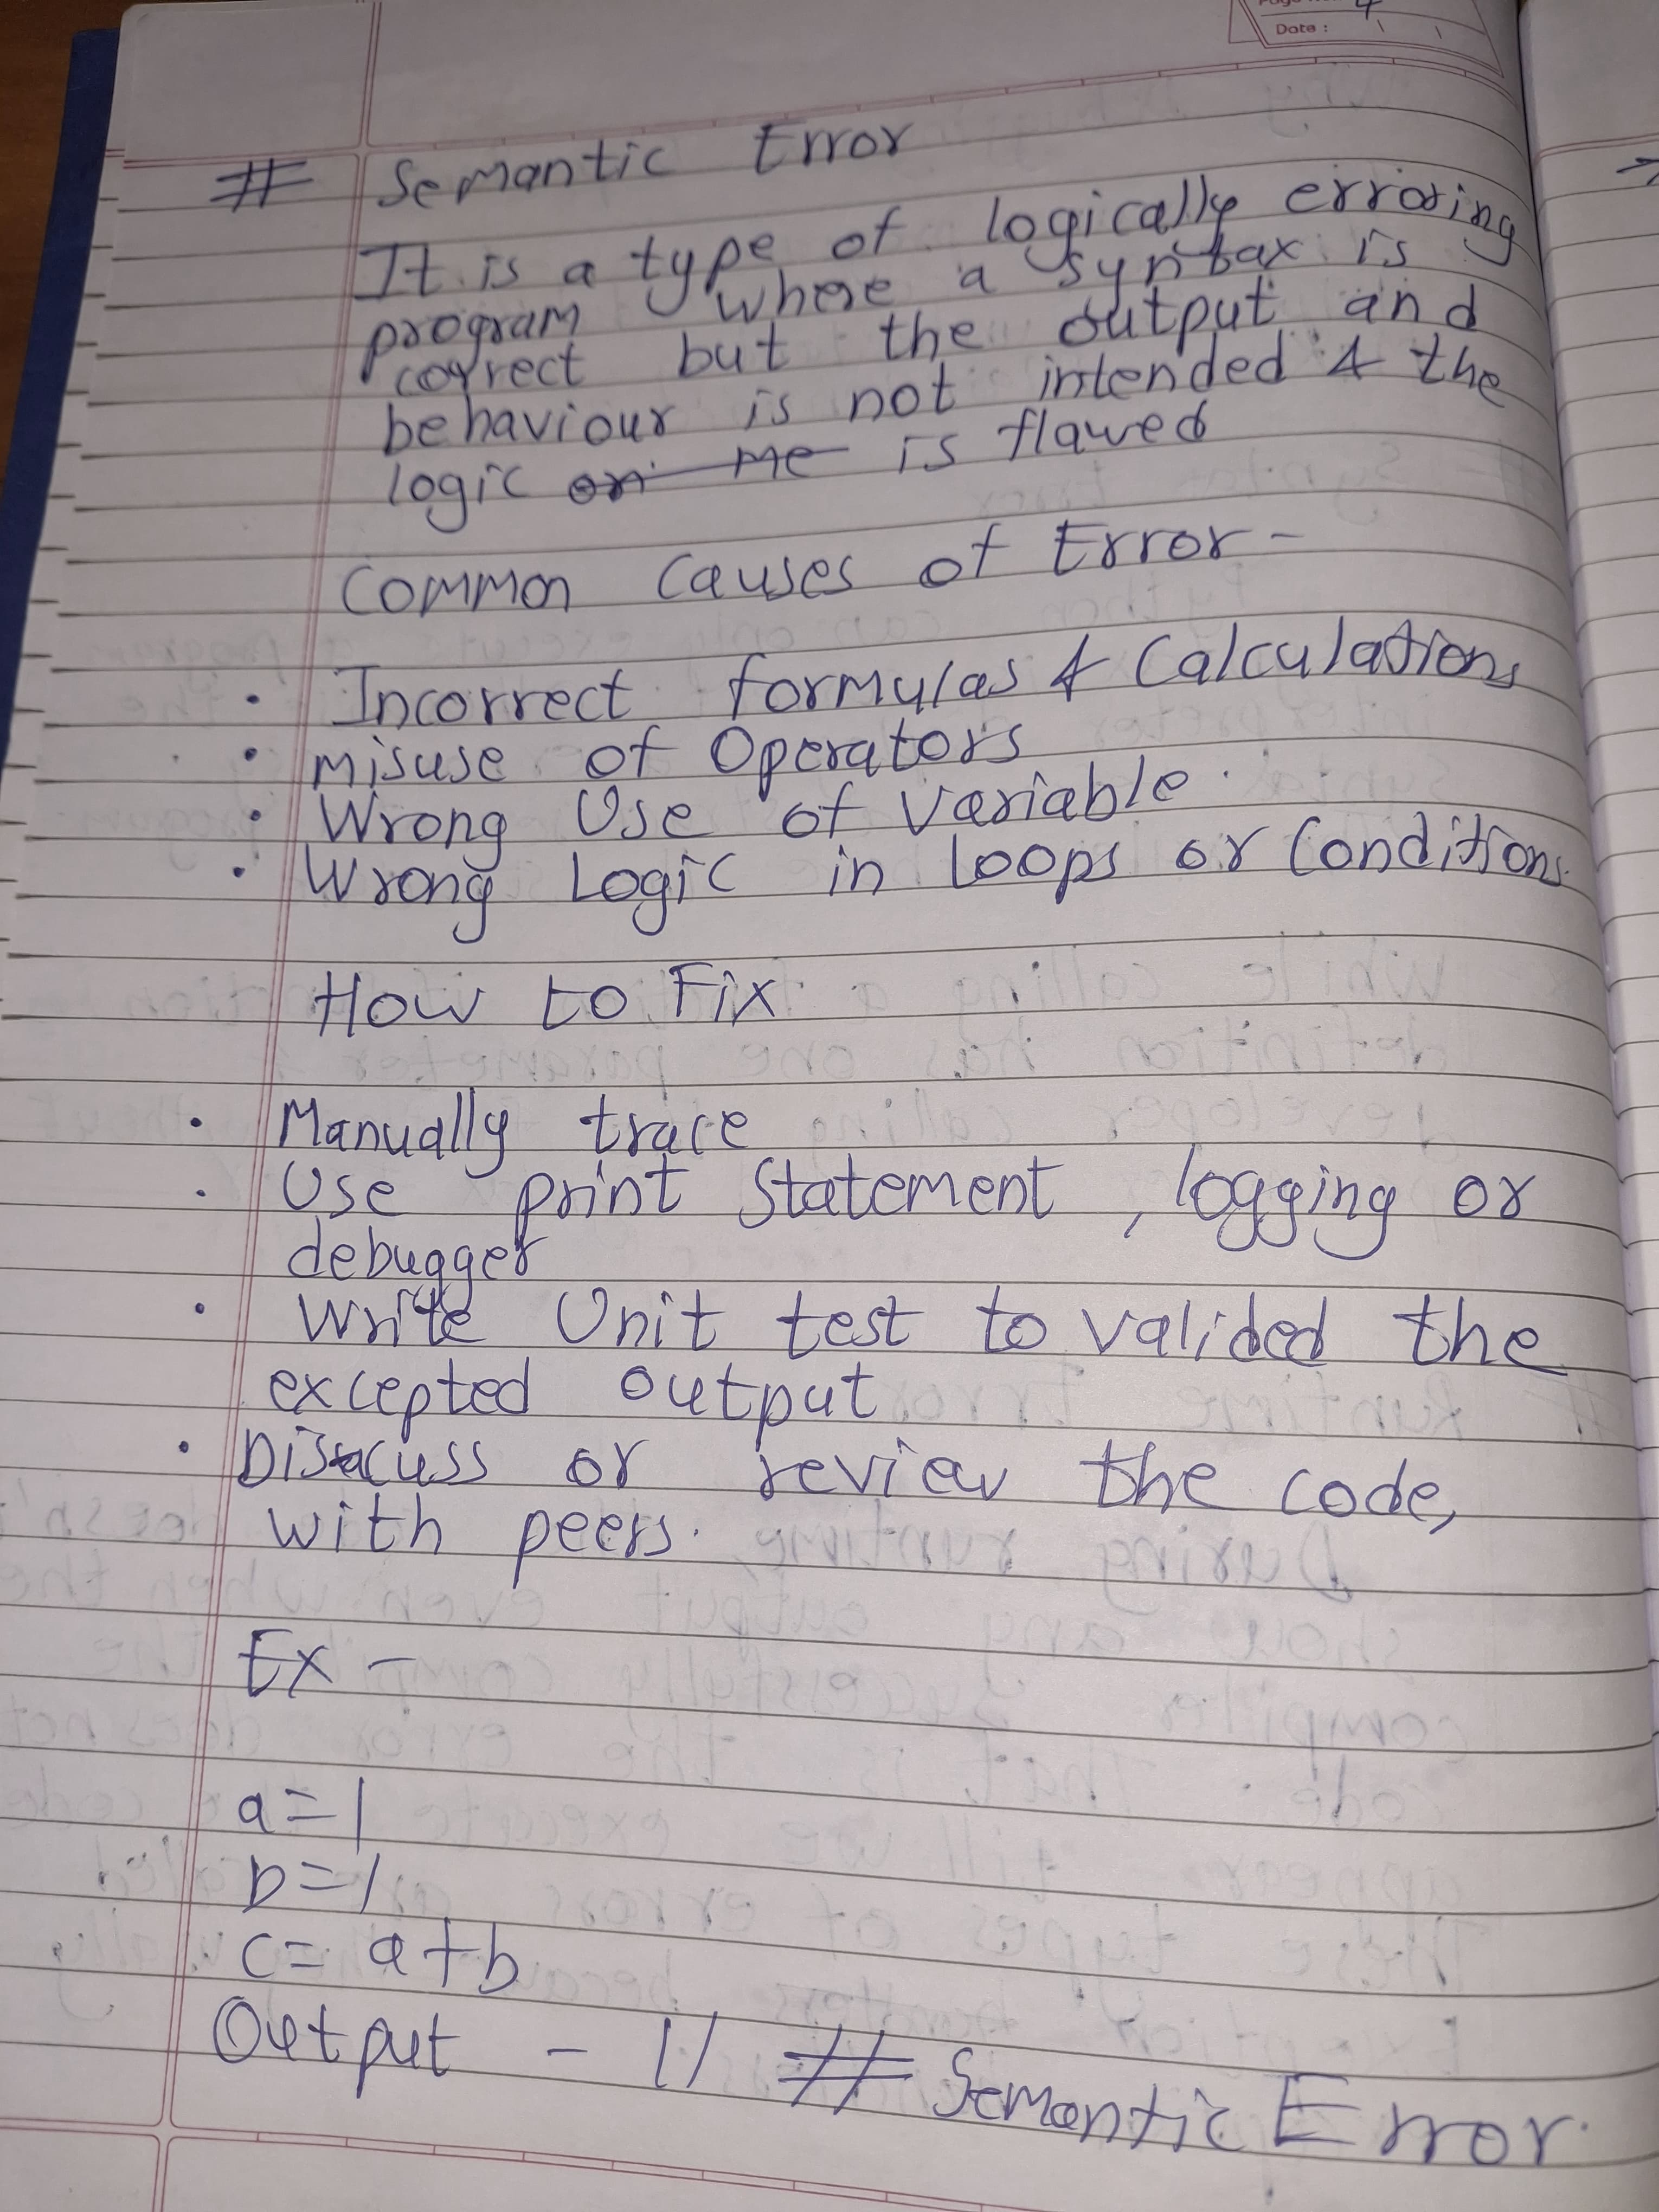 Date :
# Semantic Error
It is a type of logically erroring
program where a syntax is
correct but the output and
behaviour is not intended & the
logic is flawed
Common Causes of Error -
• Incorrect formulas & Calculations
• Misuse of Operators
• Wrong Use of Variable.
• Wrong Logic in loops or Conditions.
How to Fix
• Manually trace
• Use print Statement, logging or
debugger
• Write Unit test to valided the
excepted output
• Discuss or review the code,
with peers.
Ex -
a=1
b=1
c= a+b
Output - 11 # Semantic Error.